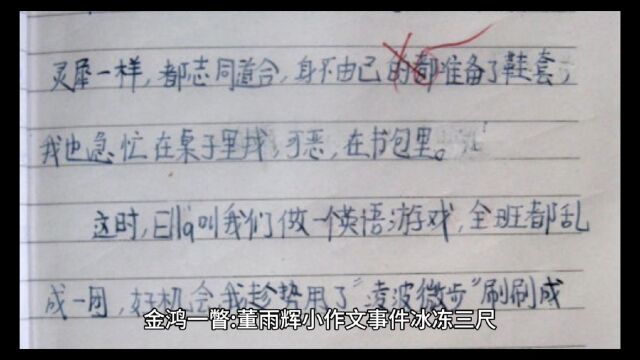 灵犀一样，都志同道合，身不由已的都准备了鞋套，
我也急忙在桌子里找，可恶，在书包里。
这时，Ella叫我们做一个英语游戏，全班都乱
成一团，好机会，我趁势用了“凌波微步”刷刷成
金鸿一瞥:董雨辉小作文事件冰冻三尺